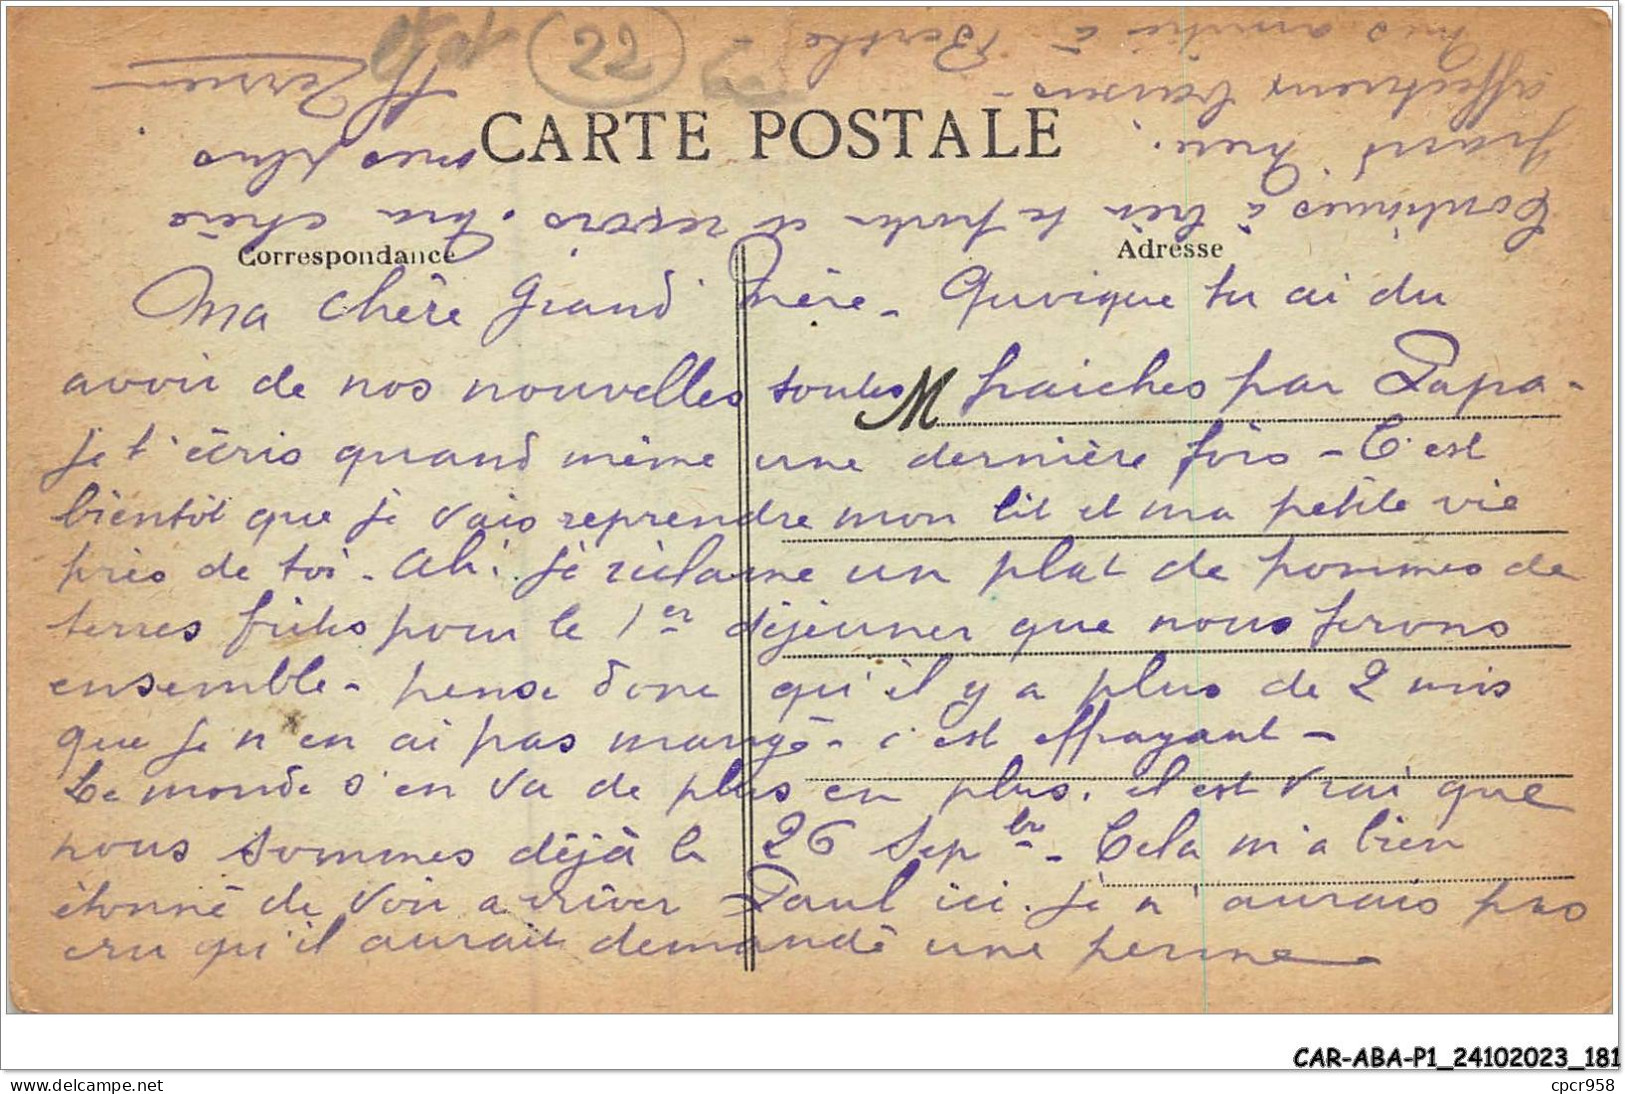 22
CARTE POSTALE
Correspondance
Adresse
M
Ma chère Grand' Mère - Quoique tu ai du
avoir de nos nouvelles toutes fraiches par Papa -
je t'écris quand même une dernière fois - C'est
bientôt que je vais reprendre mon lit et ma petite vie
près de toi. Ah! je réclame un plat de pommes de
terres frites pour le 1er déjeuner que nous ferons
ensemble - pense donc qu'il y a plus de 2 mois
que je n'en ai pas mangé - c'est effrayant -
Le monde s'en va de plus en plus. il est vrai que
nous sommes déjà le 26 Sepbre - Cela m'a bien
étonné de voir arriver Paul ici. je n'aurais pas
cru qu'il aurait demandé une perme
Continues à bien te porter et reçois, ma chère
grand' mère, mes plus
affectueux baisers -
Mes amitiés à Berthe -
CAR-ABA-P1_24102023_181
www.delcampe.net
cpcr958